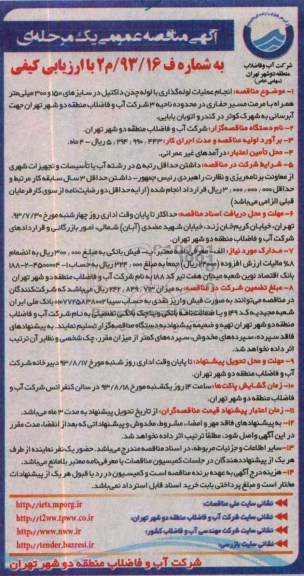 آگهی مناقصه عمومی یک مرحله‌ای
شرکت آب و فاضلاب
منطقه دو شهر تهران
(سهامی خاص)
به شماره ف ۹۳/۱۶/م۲ با ارزیابی کیفی
۱- موضوع مناقصه: انجام عملیات لوله‌گذاری با لوله چدن داکتیل در سایزهای ۱۵۰ و ۳۰۰ میلی‌متر
همراه با مرمت مسیر حفاری در محدوده ناحیه ۳ شرکت آب و فاضلاب منطقه دو شهر تهران جهت
آبرسانی به شهرک کوثر در کندرو اتوبان بابایی.
۲- نام دستگاه مناقصه‌گزار: شرکت آب و فاضلاب منطقه دو شهر تهران.
۳- برآورد اولیه مناقصه و مدت اجرای کار: ریال - ۴ ماه.
۴- محل تأمین اعتبار: درآمدهای غیر عمرانی.
۵- شرایط شرکت در مناقصه: داشتن حداقل رتبه ۵ در رشته آب یا تأسیسات و تجهیزات شهری
از معاونت برنامه‌ریزی و نظارت راهبردی رئیس جمهور - داشتن حداقل ۳ سال سابقه کار مرتبط و
حداقل ریال قرارداد انجام شده (ارایه حداقل دو رضایت‌نامه از سوی کارفرمایان
قبلی الزامی می‌باشد)
۶- مهلت و محل دریافت اسناد مناقصه: حداکثر تا پایان وقت اداری روز چهارشنبه مورخ ۹۳/۷/۳۰
تهران، خیابان کریم‌خان زند، خیابان شهید عضدی (آبان) شمالی، امور بازرگانی و قراردادهای
شرکت آب و فاضلاب منطقه دو شهر تهران.
۷- مدارک مورد نیاز: الف - معرفی‌نامه معتبر ب - فیش بانکی به مبلغ ۳۰۰,۰۰۰ ریال به انضمام
۸٪ مالیات ارزش افزوده (۲۴,۰۰۰ ریال) جمعا به مبلغ ۳۲۴,۰۰۰ ریال به حساب
بانک اقتصاد نوین شعبه میدان هفت تیر کد ۱۸۸ به نام شرکت آب و فاضلاب منطقه دو شهر تهران.
۸- مبلغ تضمین شرکت در مناقصه: به میزان ریال می‌باشد که شرکت‌کنندگان
در مناقصه می‌توانند به صورت فیش واریز نقدی به حساب سیبا بانک ملی ایران
شعبه مجیدیه کد ۱۴۹ و یا ضمانت‌نامه بانکی و یا چک بانکی تضمینی به نام شرکت آب و فاضلاب
منطقه دو شهر تهران تهیه و ضمیمه پیشنهاد به دستگاه مناقصه‌گزار تسلیم نمایند. به پیشنهادهای
فاقد سپرده، سپرده‌های مخدوش، سپرده‌های کمتر از میزان مقرر، چک شخصی و نظایر آن ترتیب
اثر داده نخواهد شد.
۹- مهلت و محل تحویل پیشنهاد: تا پایان وقت اداری روز شنبه مورخ ۹۳/۸/۱۷ دبیرخانه شرکت
آب و فاضلاب منطقه دو شهر تهران.
۱۰- زمان گشایش پاکت‌ها: ساعت ۱۴ روز یکشنبه مورخ ۹۳/۸/۱۸ در سالن کنفرانس شرکت آب و
فاضلاب منطقه دو شهر تهران.
۱۱- زمان اعتبار پیشنهاد قیمت مناقصه‌گران: از تاریخ تحویل پیشنهاد به مدت ۳ ماه می‌باشد.
۱۲- به پیشنهادهای فاقد مهر و امضاء، مشروط، مخدوش و پیشنهاداتی که بعد از انقضاء مدت مقرر
در این آگهی واصل شود، مطلقاً ترتیب اثر داده نخواهد شد.
۱۳- سایر اطلاعات و جزئیات مربوطه، در اسناد مناقصه مندرج می‌باشد. حضور یک نفر نماینده از طرف
هر یک از پیشنهاددهندگان در جلسات کمیسیون مناقصات با معرفی‌نامه معتبر بلامانع می‌باشد.
۱۴- هزینه درج آگهی به عهده برنده مناقصه است و کمیسیون در رد یا قبول هر یک از پیشنهادات
مختار است و مبلغ پرداختی بابت خرید اسناد قابل استرداد نمی‌باشد.
نشانی سایت ملی مناقصات: http://iets.mporg.ir
نشانی سایت شرکت آب و فاضلاب منطقه دو شهر تهران: http://t2ww.tpww.co.ir
نشانی سایت شرکت مهندسی آب و فاضلاب کشور: http://www.nww.ir
نشانی سایت بازرسی: http://tender.bazresi.ir
شرکت آب و فاضلاب منطقه دو شهر تهران